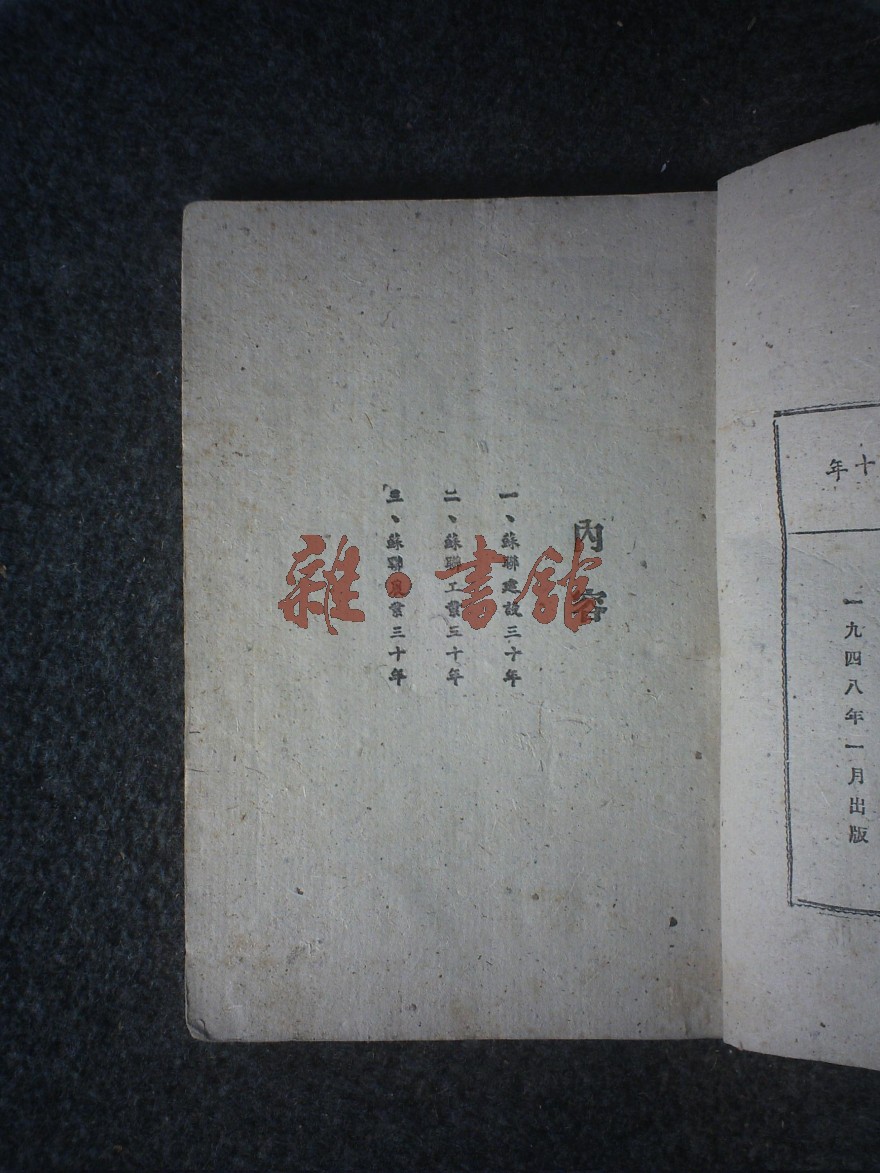 十年
一九四八年一月出版
內容
一、蘇聯建設三十年
二、蘇聯工業三十年
三、蘇聯農業三十年
雜·書館